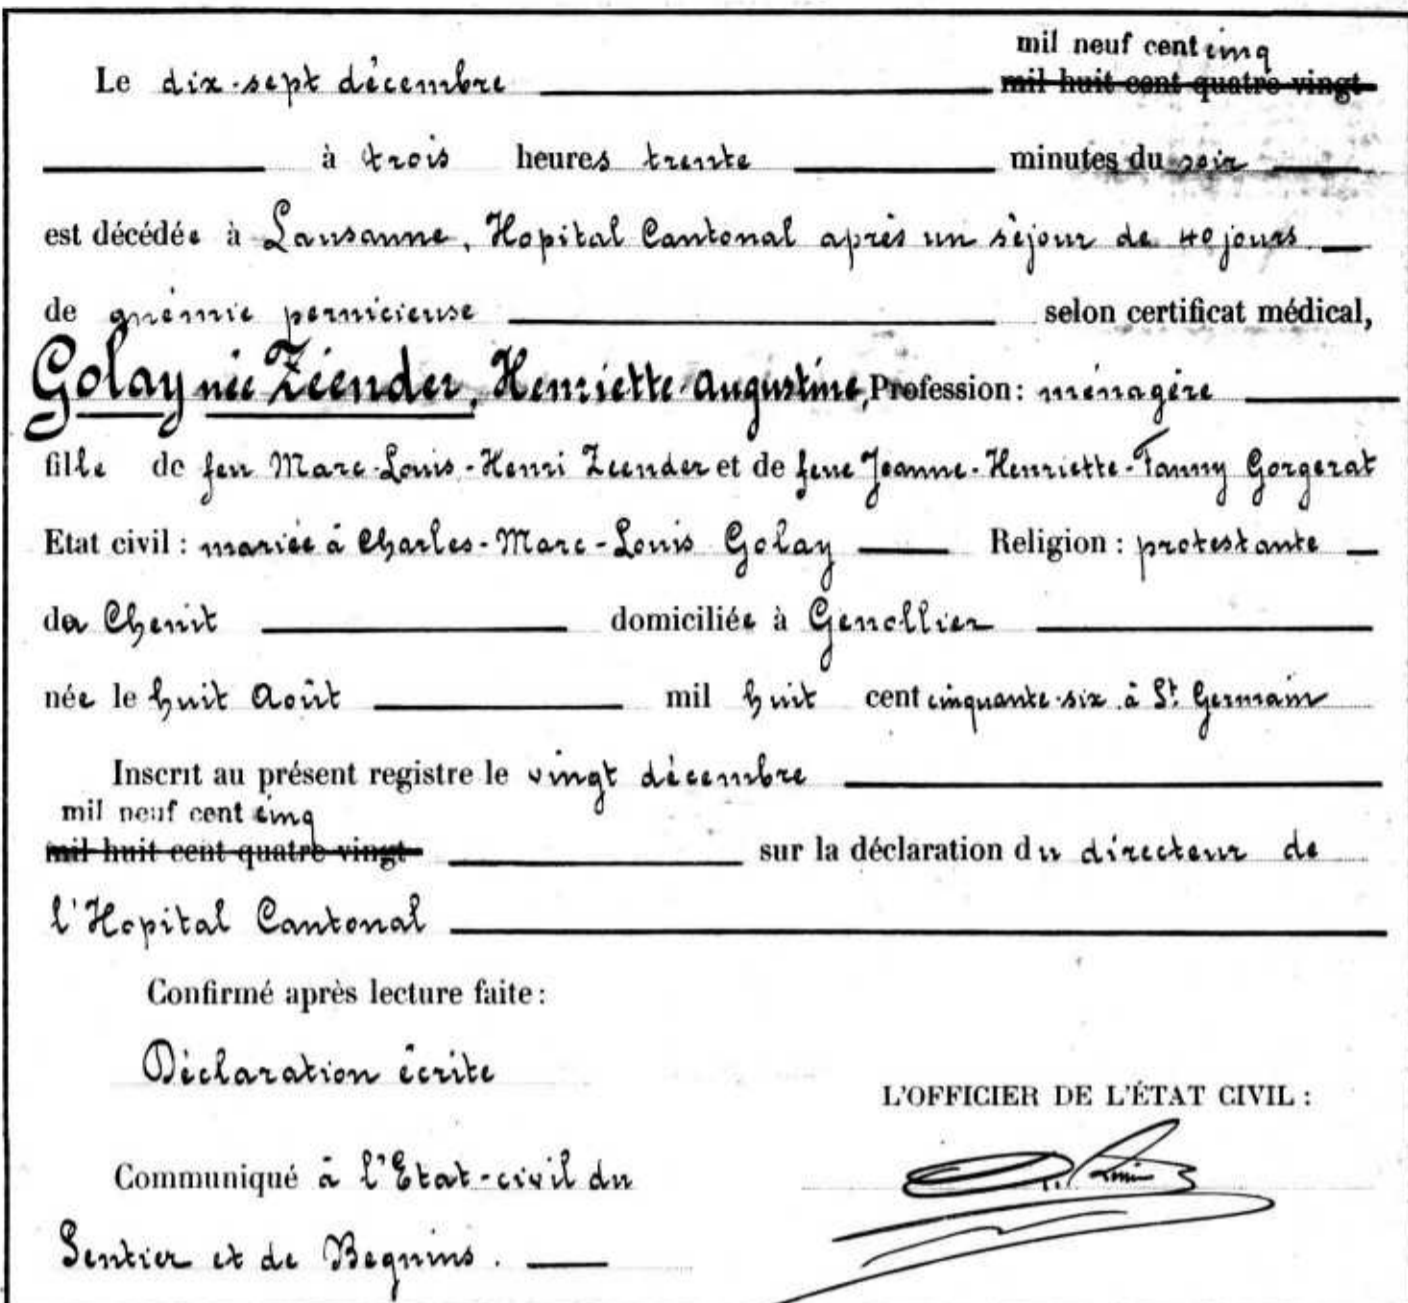 mil neuf cent cinq
Le dix-sept décembre mil huit cent quatre vingt
à trois heures trente minutes du soir
est décédée à Lausanne, Hopital Cantonal après un séjour de 40 jours.
de anémie pernicieuse selon certificat médical,
Golay née Zéender, Henriette-Augustine, Profession: ménagère
fille de feu Marc-Louis-Henri Zeender et de feue Jeanne-Henriette-Fanny Gorgerat
Etat civil : mariée à Charles-Marc-Louis Golay Religion : protestante
du Chenit domiciliée à Genollier
née le huit Août mil huit cent cinquante-six à St Germain
Inscrit au présent registre le vingt décembre
mil neuf cent cinq
mil huit cent quatre vingt sur la déclaration du directeur de
l'Hopital Cantonal
Confirmé après lecture faite :
Déclaration écrite
L'OFFICIER DE L'ÉTAT CIVIL :
Communiqué à l'Etat-civil du
Sentier et de Begnins.